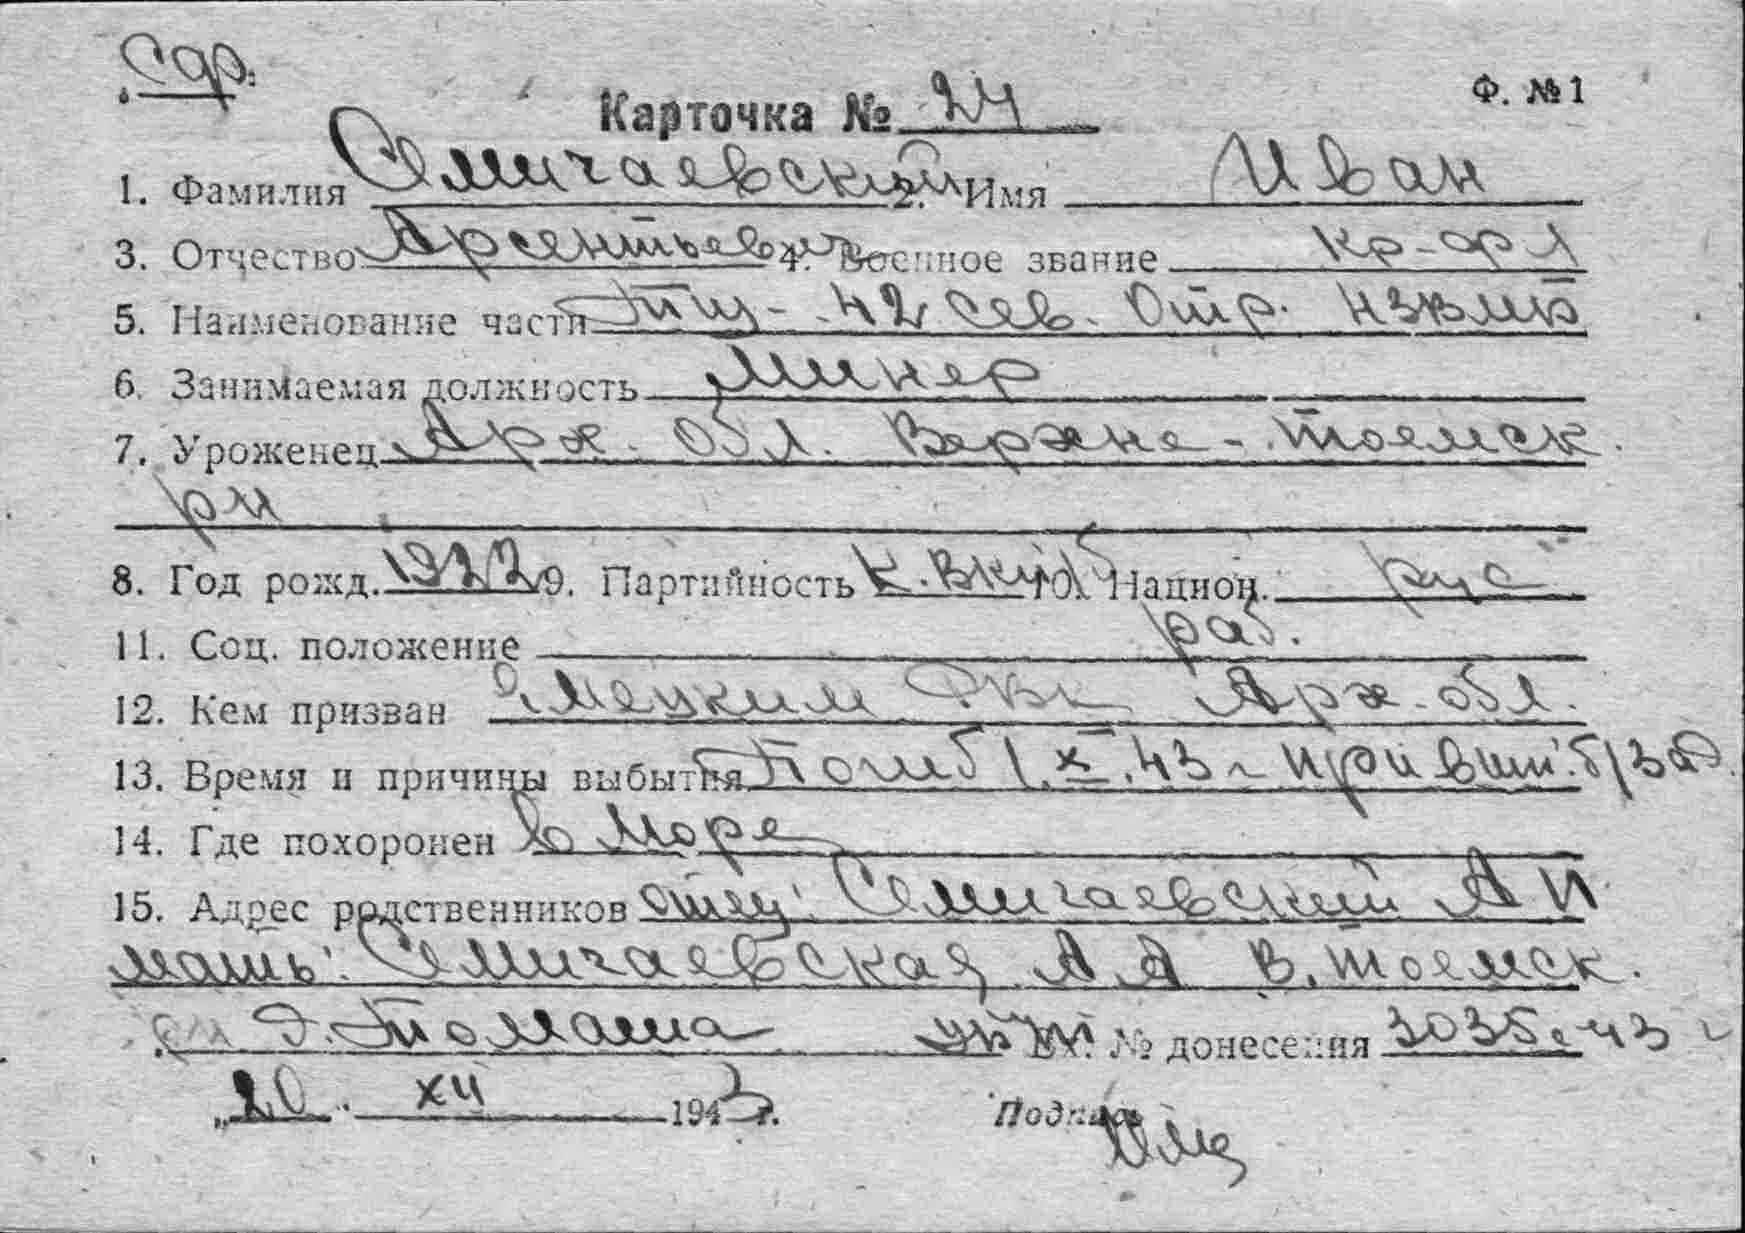 Сдр.
Ф. №1
Карточка № 24
1. Фамилия Семичаевский 2. Имя Иван
3. Отчество Арсентьевич 4. Военное звание кр-фл
5. Наименование части ТЩ-42 Сев. Отр. НЗВМБ
6. Занимаемая должность минер
7. Уроженец Арх. Обл. Верхне-Тоемск.
рн
8. Год рожд. 1922 9. Партийность К.ВКП/б 10. Национ. рус
11. Соц. положение раб.
12. Кем призван Емецким РВК Арх. обл.
13. Время и причины выбытия Погиб 1.X.43 г при вып. б/зад.
14. Где похоронен в море
15. Адрес родственников отец: Семичаевский А И
мать: Семичаевская А А В. Тоемск.
рн д. Томаша Вх. № донесения 3035с 43 г
„20" XII 1943 г. Подпись